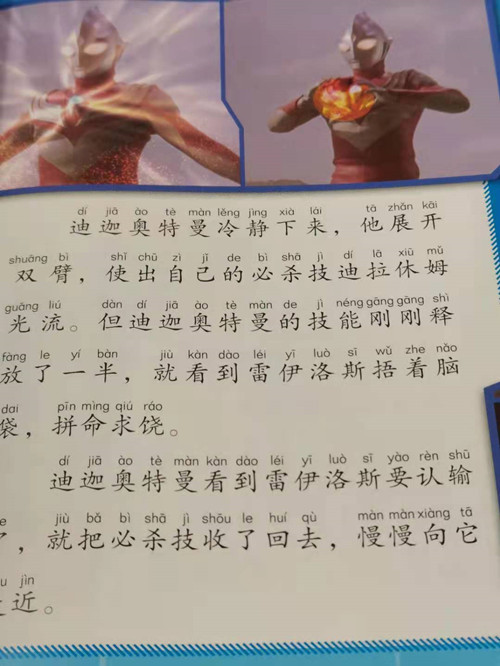 dí jiā ào tè màn lěng jìng xià lái tā zhǎn kāi
迪迦奥特曼冷静下来，他展开
shuāng bì shǐ chū zì jǐ de bì shā jì dí lā xiū mǔ
双臂，使出自己的必杀技迪拉休姆
guāng liú dàn dí jiā ào tè màn de jì néng gāng gāng shì
光流。但迪迦奥特曼的技能刚刚释
fàng le yí bàn jiù kàn dào léi yī luò sī wǔ zhe nǎo
放了一半，就看到雷伊洛斯捂着脑
dai pīn mìng qiú ráo
袋，拼命求饶。
dí jiā ào tè màn kàn dào léi yī luò sī yào rèn shū
迪迦奥特曼看到雷伊洛斯要认输
jiù bǎ bì shā jì shōu le huí qù màn màn xiàng tā
了，就把必杀技收了回去，慢慢向它
jìn
近。